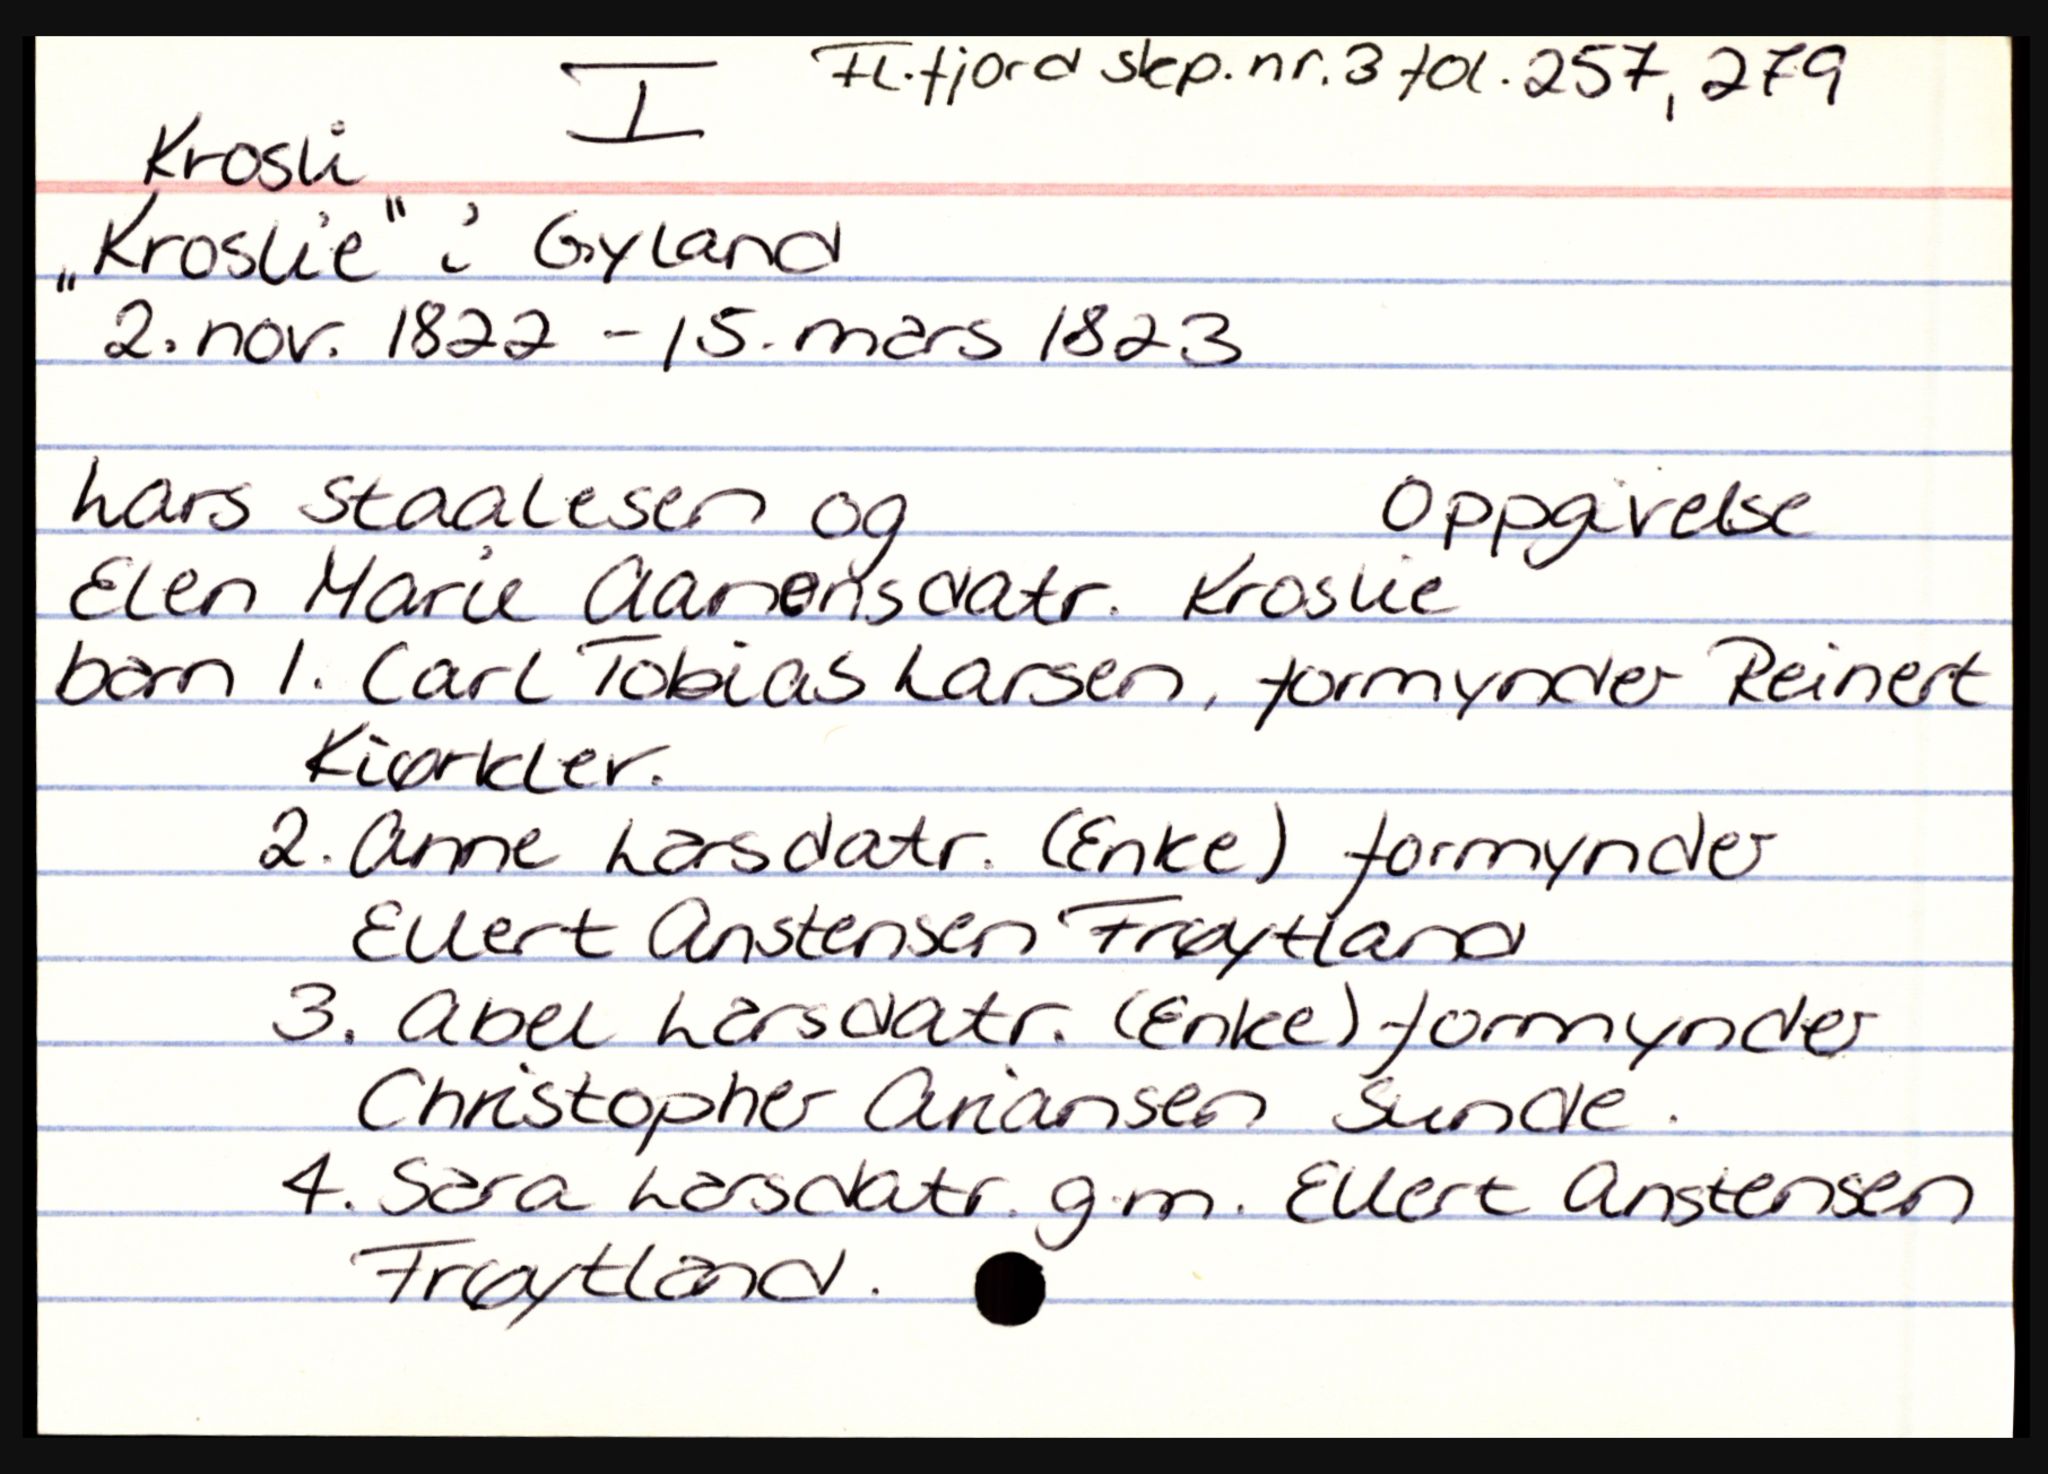 I Fl.fjord skp.nr.3 fol. 257, 279
Krosli
„Kroslie" i Gyland
2. nov. 1822 - 15. mars 1823
Lars Staalesen og Oppgivelse
Elen Marie Aanensdatr. Kroslie
barn 1. Carl Tobias Larsen, formynder Reinert
Kiørklev.
2. Anne Larsdatr. (Enke) formynder
Ellert Anstensen Frøytland
3. Abel Larsdatr. (Enke) formynder
Christopher Ariansen Sunde.
4. Sara Larsdatr. g.m. Ellert Anstensen
Frøytland.